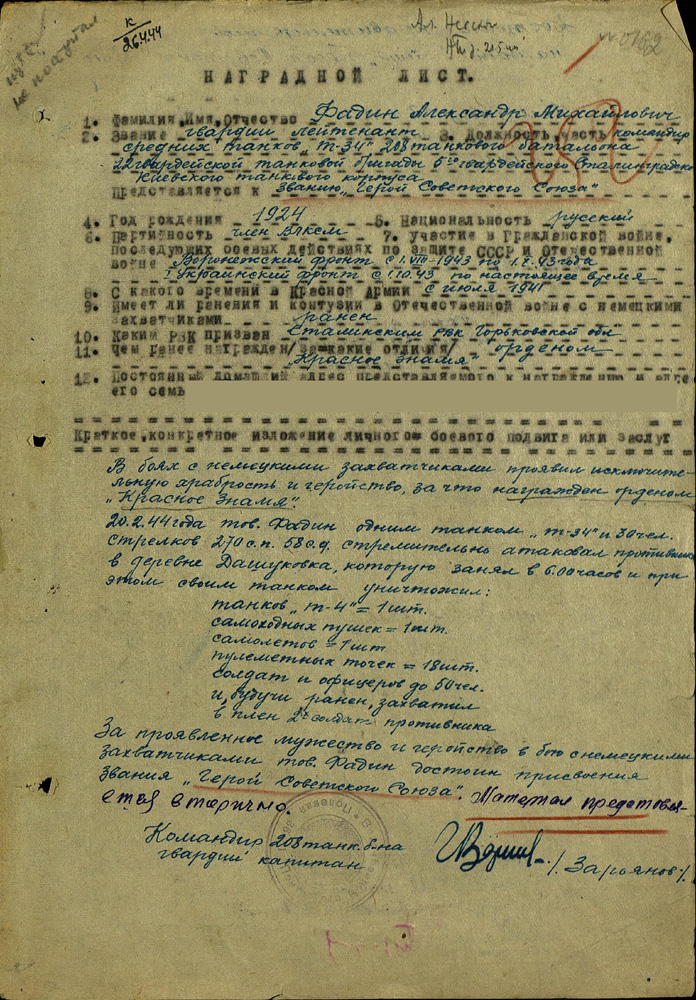 К
26.4.44
Ал. Невский
0162
НАГРАДНОЙ ЛИСТ.
1. Фамилия, Имя, Отчество Фадин Александр Михайлович
2. Звание гвардии лейтенант 3. Должность, часть командир
средних танков "Т-34" 208 танкового баталиона
22 гвардейской танковой бригады 5го гвардейского Сталинградско
Киевского танкового корпуса
Представляется к званию "Герой Советского Союза"
4. Год рождения 1924 5. Национальность русский
6. Партийность член ВЛКСМ 7. участие в Гражданской войне,
последующих боевых действиях по защите СССР и Отечественной
войне Воронежский фронт с 1.VIII-1943 по 1.X.43 года
I Украинский фронт с 1.10.43 по настоящее время
8. С какого времени в Красной Армии с июля 1941
9. Имеет ли ранения и контузии в Отечественной войне с немецкими
захватчиками ранен
10. Каким РВК призван Сталинским РВК Горьковской обл
11. Чем ранее награжден/за какие отличия/ орденом
"Красное Знамя"
12. Постоянный домашний адрес представляемого к награждению и адрес
его семь
Краткое, конкретное изложение личного боевого подвига или заслуг
В боях с немецкими захватчиками проявил исключите-
льную храбрость и геройство, за что награжден орденом
"Красное Знамя".
20.2.44 года тов. Фадин одним танком "Т-34" и 30 чел.
стрелков 270 с.п. 58 с.д. стремительно атаковал противника
в деревне Дашуковка, которую занял в 6.00 часов и при
этом своим танком уничтожил:
танков "Т-4" = 1 шт.
самоходных пушек = 1 шт.
самолетов = 1 шт
пулеметных точек = 18 шт.
солдат и офицеров до 50 чел.
и, будучи ранен, захватил
в плен 2х солдат противника
За проявленное мужество и геройство в бою с немецкими
захватчиками тов. Фадин достоин присвоения
звания "Герой Советского Союза". Материал представля-
ется вторично.
Командир 208 танк. б-на
гвардии капитан /Зароянов/.